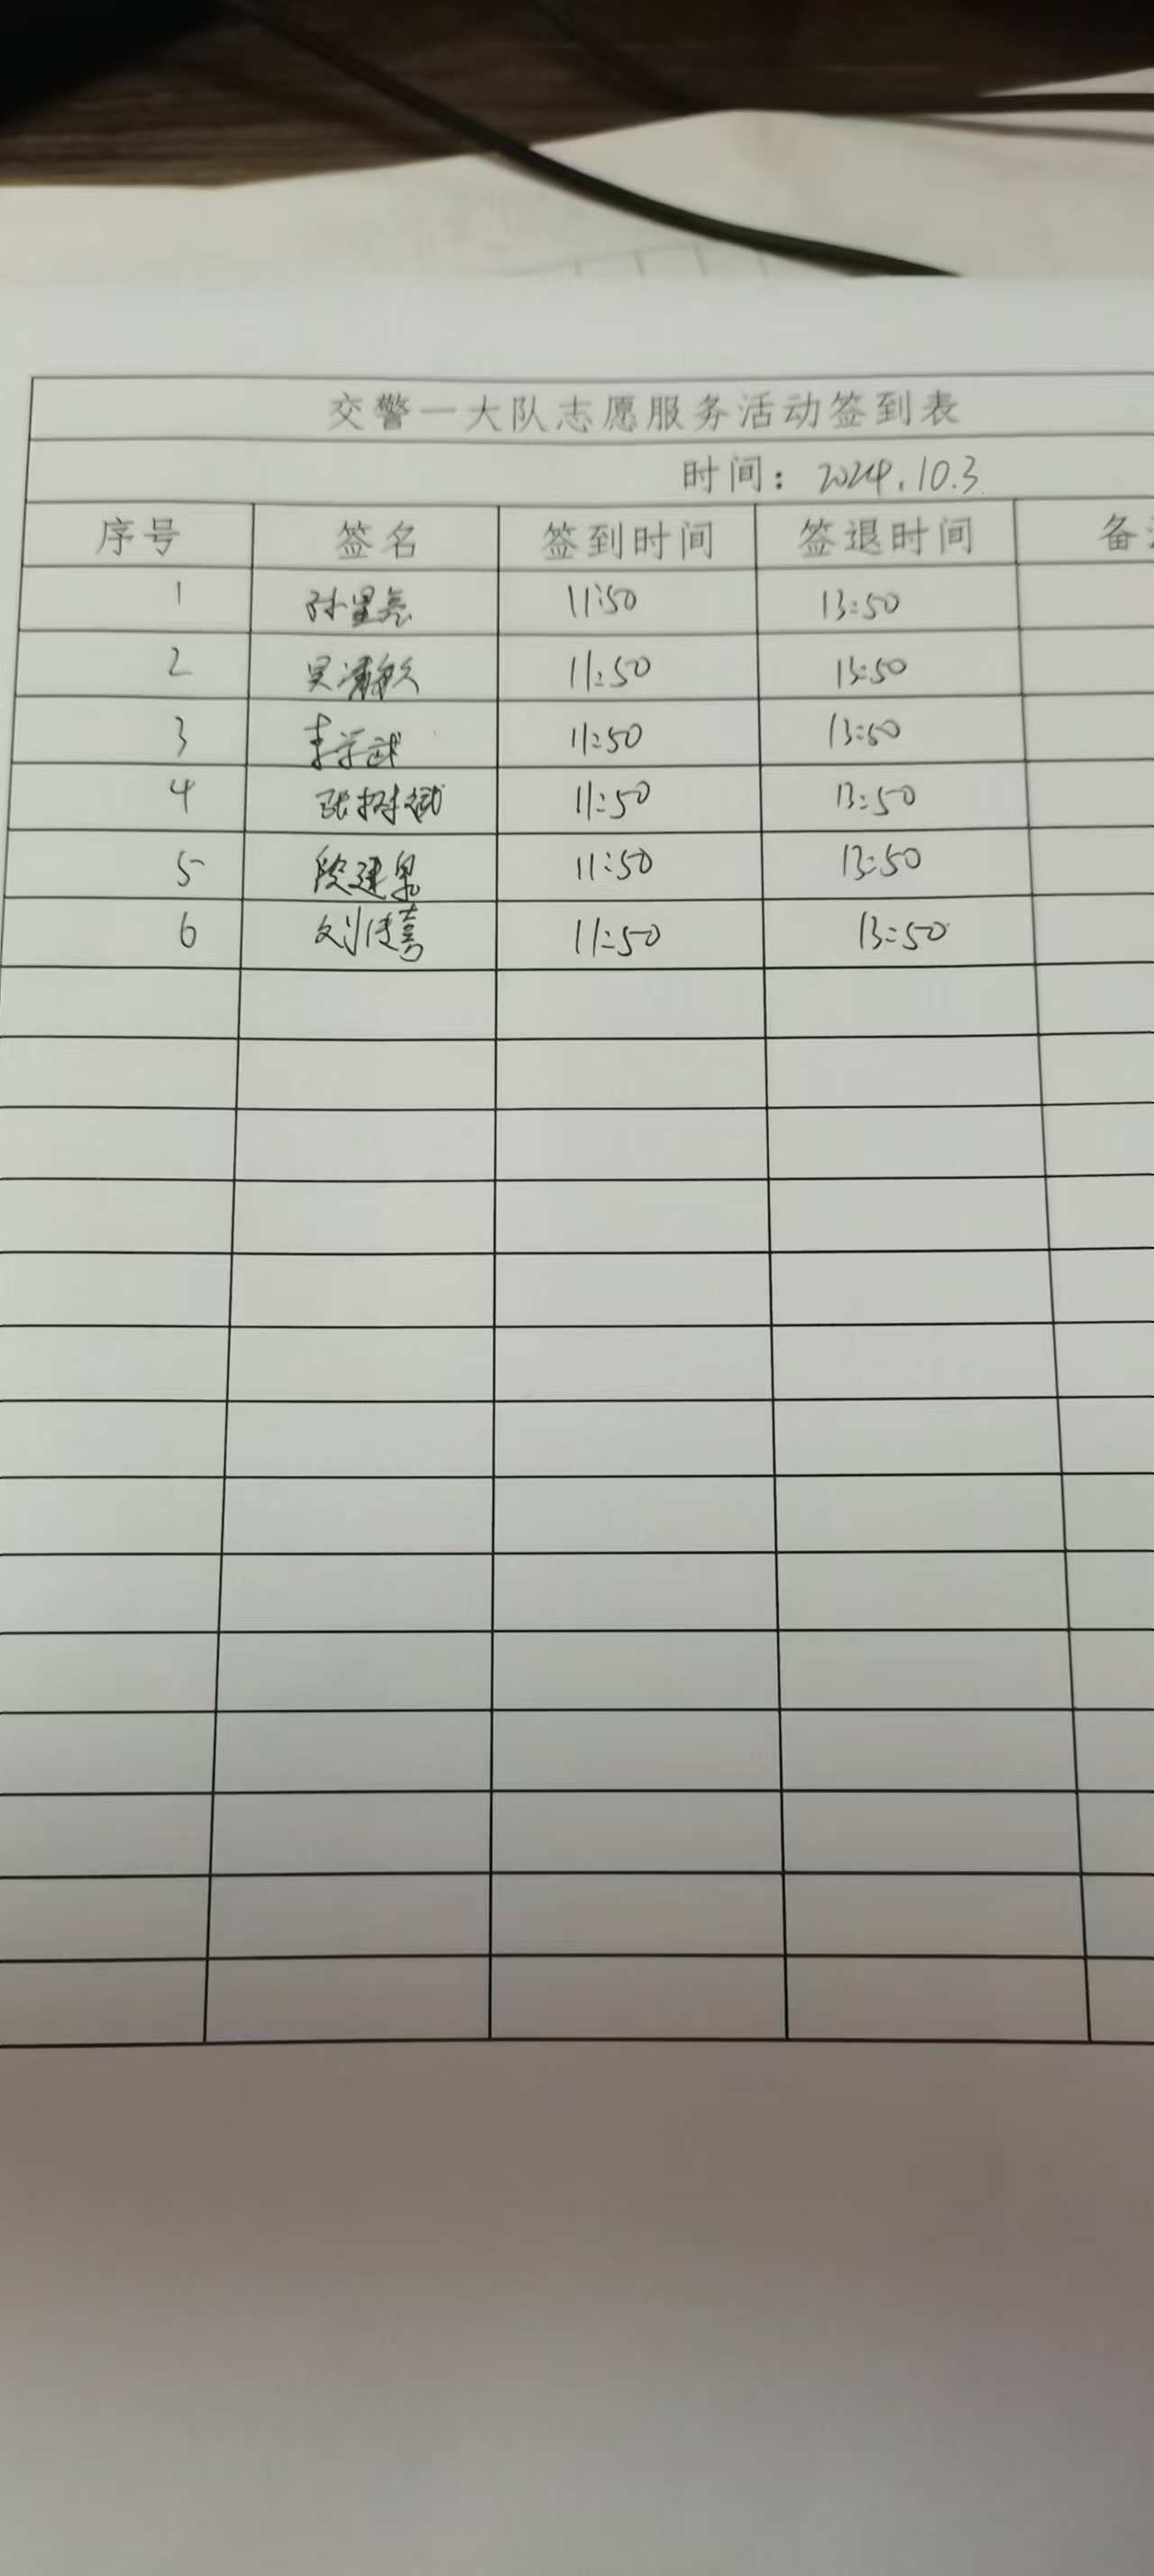 交警一大队志愿服务活动签到表
时间： 2024.10.3
序号 签名 签到时间 签退时间 备
1 孙星亮 11:50 13:50
2 吴 11:50 13:50
3 李学武 11:50 13:50
4 张树斌 11:50 13:50
5 段建泉 11:50 13:50
6 刘传喜 11:50 13:50